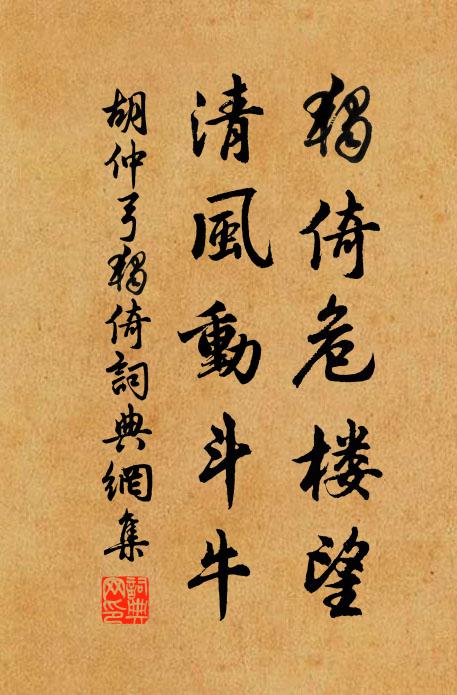 獨倚危楼望
清風動斗牛
胡仲弓獨倚詞典網集
詞典網印